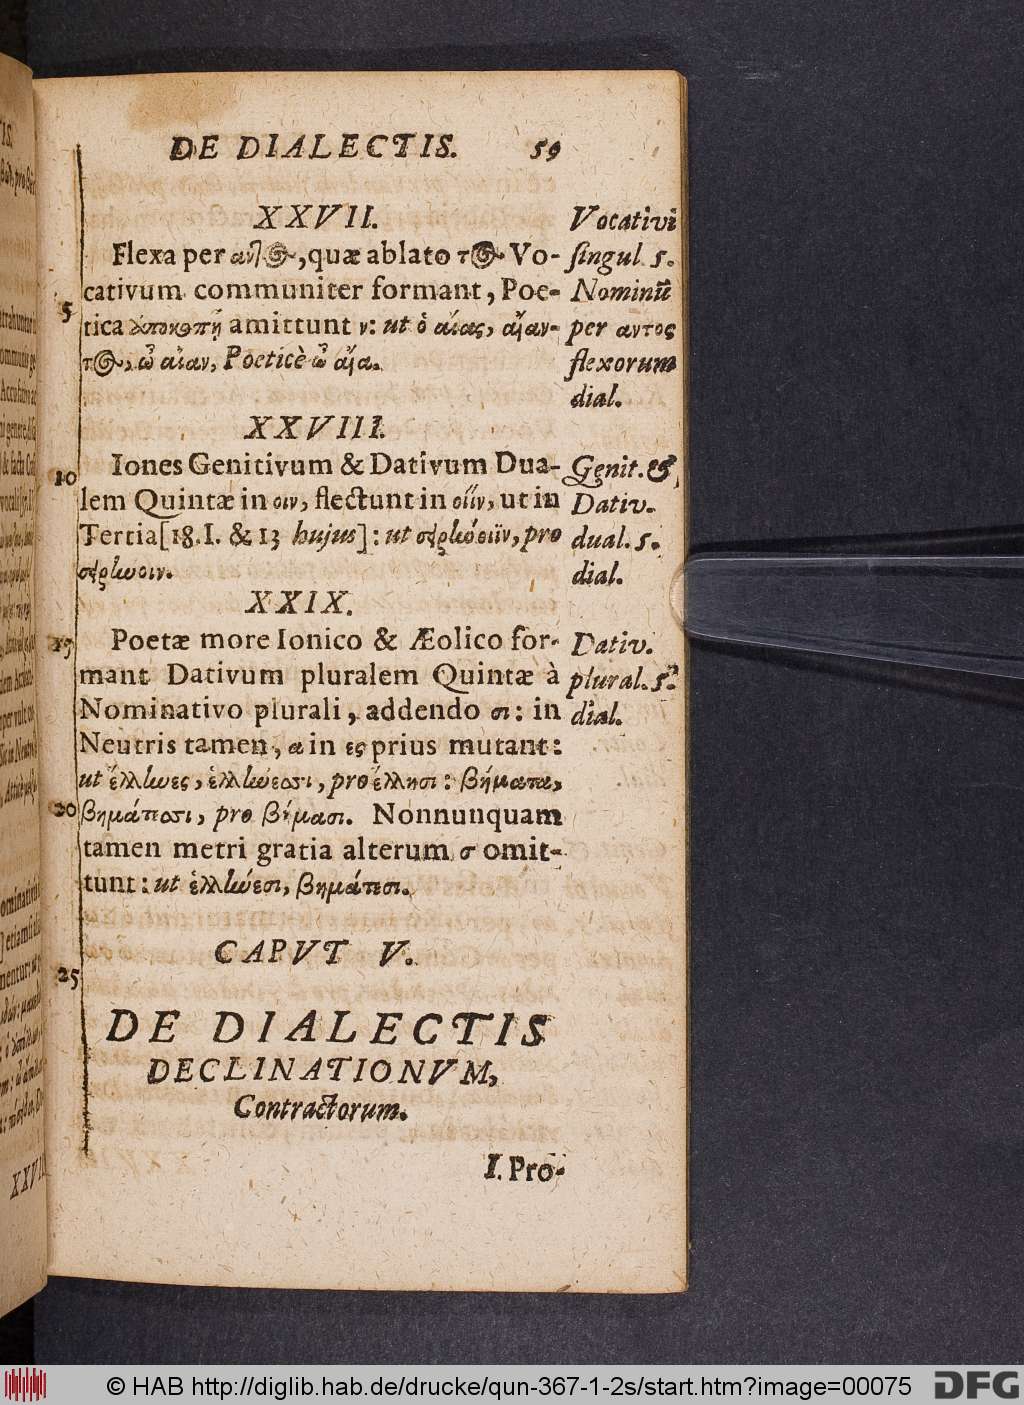 DE DIALECTIS. 59
XXVII.
Flexa per αντος, quæ ablato τος Vo-
cativum communiter formant, Poe-
tica ἀποκοπῇ amittunt ν: ut ὁ αἴας, αἴαν-
τος, ὦ αἶαν, Poeticè ὦ αἶα.
Vocativi
singul. 5.
Nominũ
per αντος
flexorum
dial.
XXVIII.
Iones Genitivum & Dativum Dua-
lem Quintæ in οιν, flectunt in οιϊν, ut in
Tertia [18. I. & 13 hujus]: ut σειρήνοιϊν, pro
σειρήνοιν.
Genit. &
Dativ.
dual. 5.
dial.
XXIX.
Poetæ more Ionico & Æolico for-
mant Dativum pluralem Quintæ à
Nominativo plurali, addendo σι: in
Neutris tamen, α in ες prius mutant:
ut ἕλληνες, ἑλλήνεσσι, pro ἕλλησι: βήματα,
βημάτεσσι, pro βήμασι. Nonnunquam
tamen metri gratia alterum σ omit-
tunt: ut ἑλλήνεσι, βημάτεσι.
Dativ.
plural. 5.
dial.
5
10
15
20
25
CAPVT V.
DE DIALECTIS
DECLINATIONVM,
Contractorum.
I. Pro-
XXVII
© HAB http://diglib.hab.de/drucke/qun-367-1-2s/start.htm?image=00075
DFG